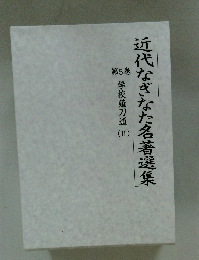 近代なぎなた名著選集
第5巻 學校薙刀道(Ⅱ)